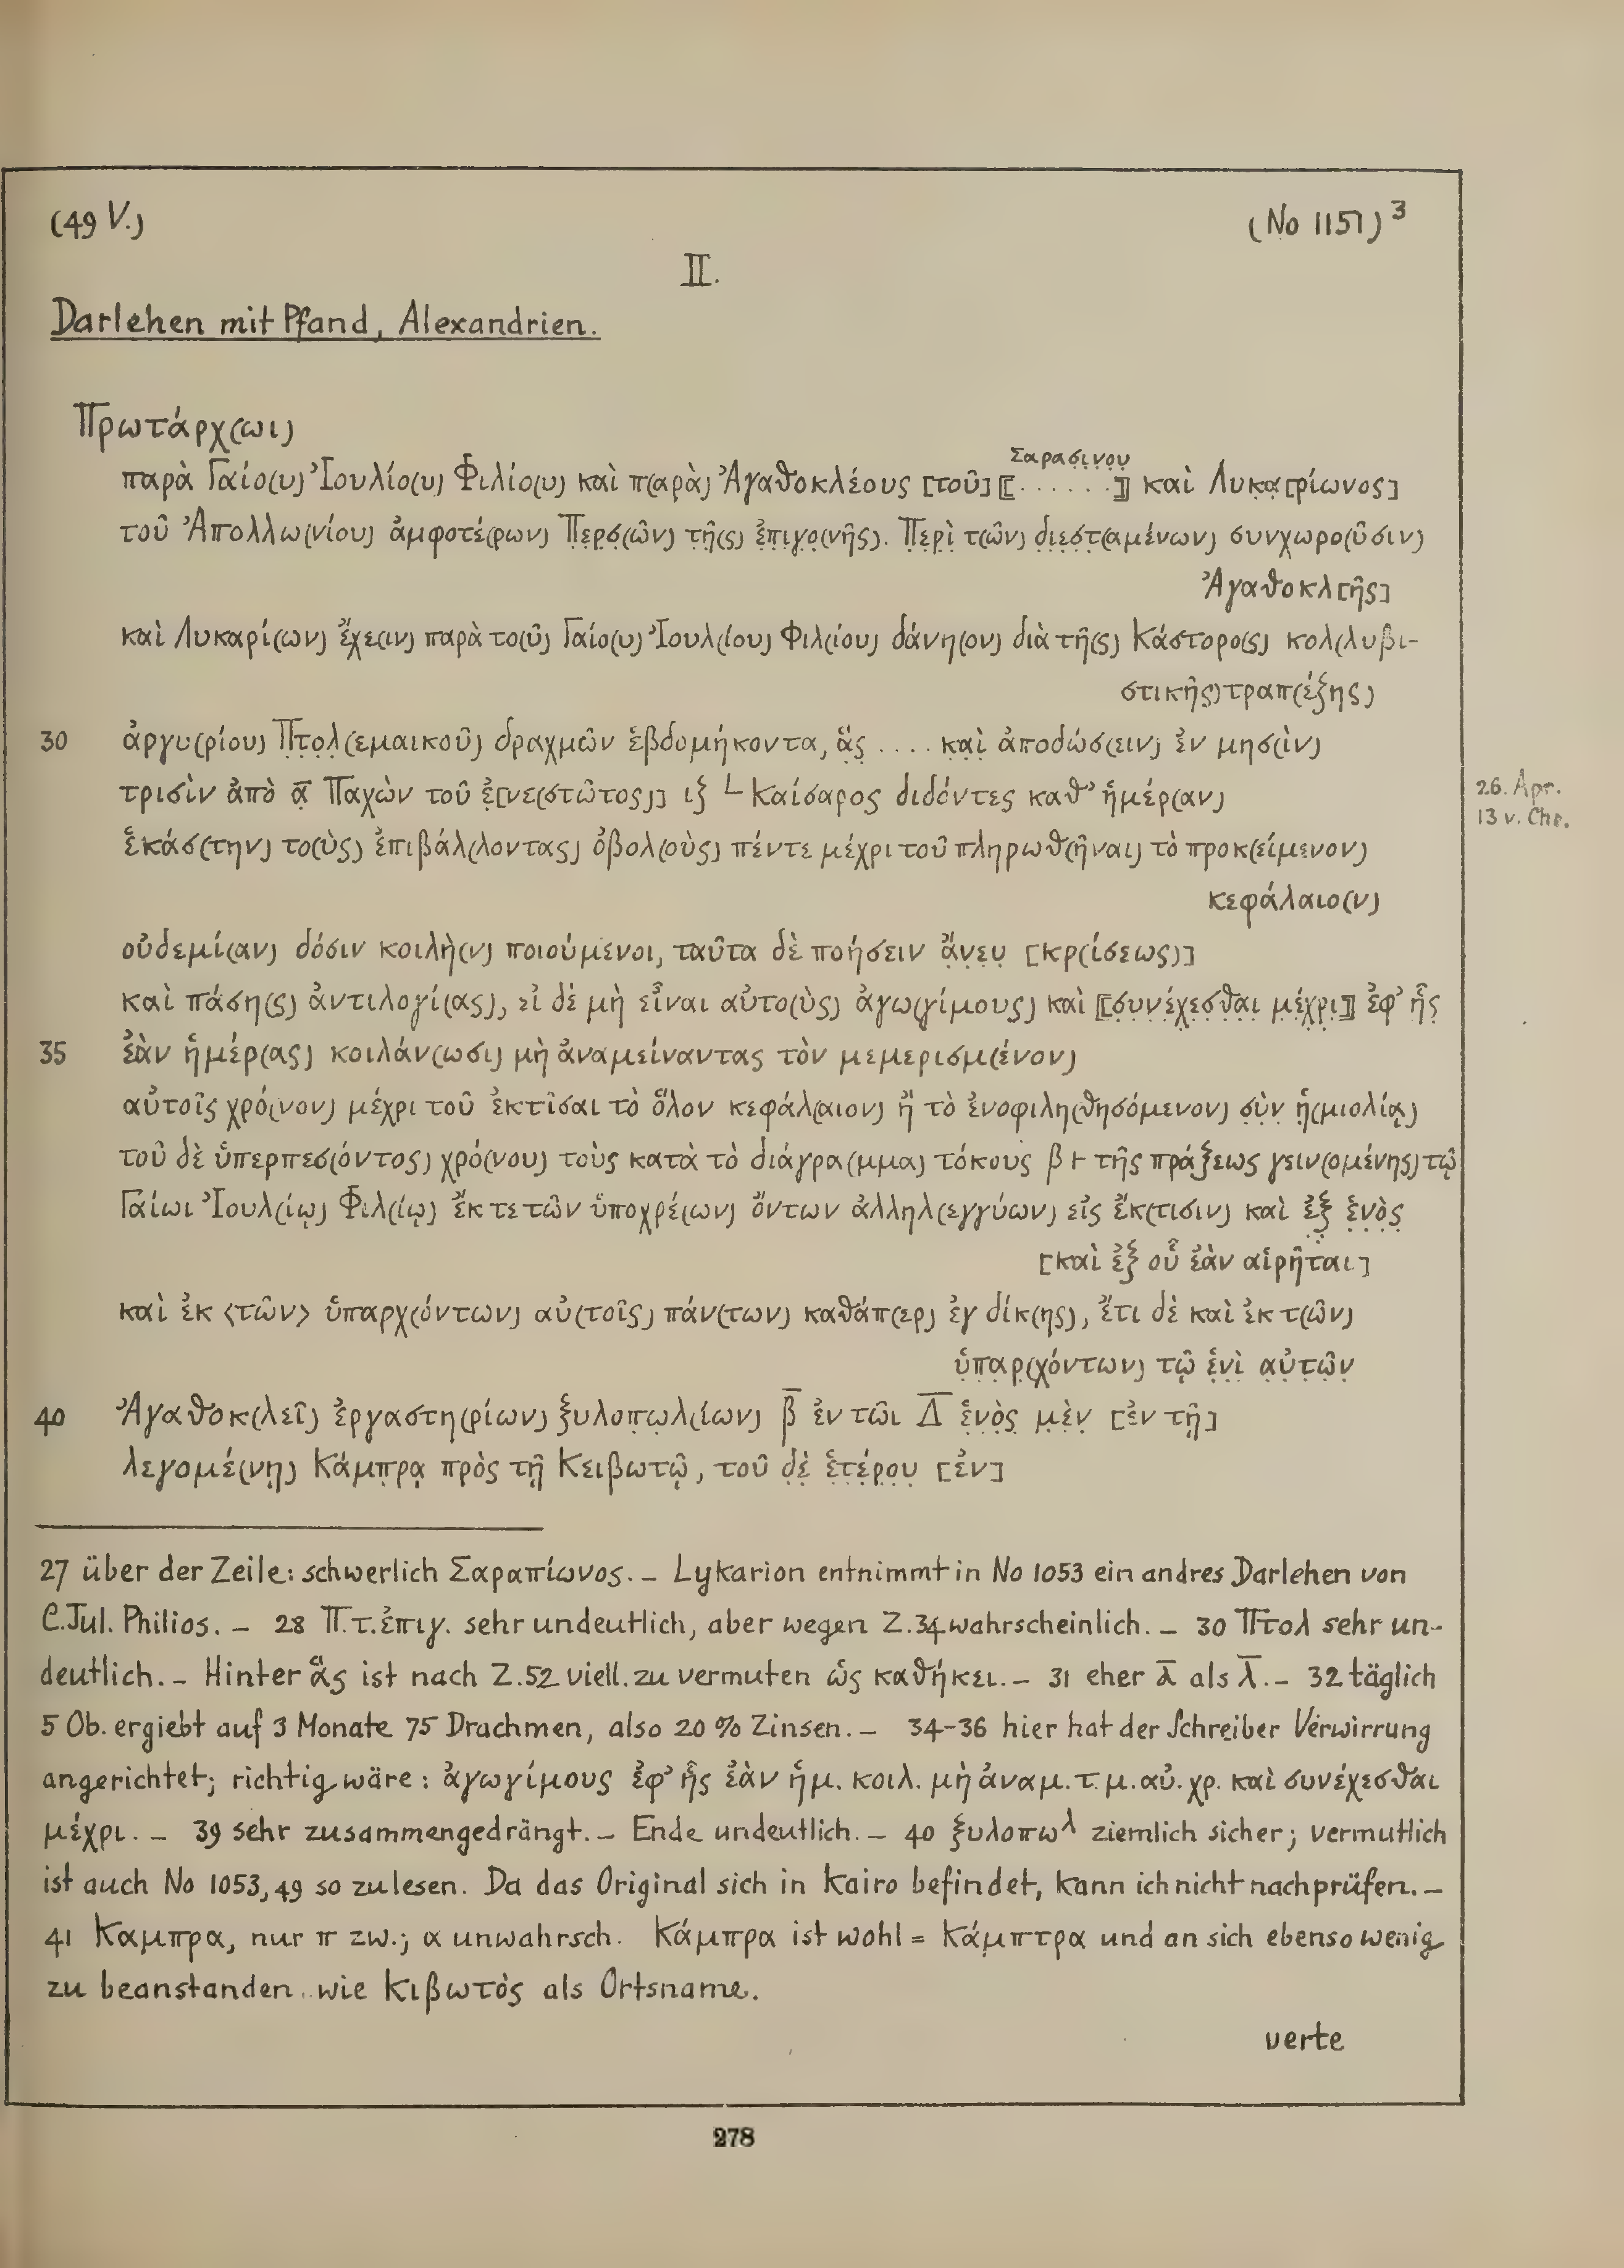 (49 V.)
(No 1151)³
II.
Darlehen mit Pfand, Alexandrien.
Πρωτάρχ(ωι)
Σαρασι̣νο̣υ̣
παρὰ Γαίο(υ) Ἰουλίο(υ) Φιλίο(υ) καὶ π(αρὰ) Ἀγαθοκλέους [τοῦ] ⟦......⟧ καὶ Λυκα̣[ρίωνος]
τοῦ Ἀπολλω(νίου) ἀμφοτέ(ρων) Π̣ε̣ρσ̣(ῶν) τ̣ῆ̣(ς) ἐ̣π̣ι̣γο̣(νῆς). Π̣ε̣ρὶ̣ τ(ῶν) δ̣ι̣ε̣σ̣τ̣(αμένων) συνχωρο(ῦσιν)
Ἀγαθοκλ[ῆς]
καὶ Λυκαρί(ων) ἔχε(ιν) παρὰ το(ῦ) Γαίο(υ) Ἰουλ(ίου) Φιλ(ίου) δάνη(ον) διὰ τῆ(ς) Κάστορο(ς) κολ(λυβι-
στικῆς) τραπ(έζης)
30 ἀργυ(ρίου) Π̣τ̣ο̣λ̣(εμαικοῦ) δραχμῶν ἑβδομήκοντα, ἅ̣ς̣ .... κ̣α̣ὶ̣ ἀποδώσ(ειν) ἐν μησ(ὶν)
τρισὶν ἀπὸ α̣̅ Παχὼν τοῦ ἐ̣[νε(στῶτος)] ιξ └ Καίσαρος διδόντες καθ’ ἡμέρ(αν)
26. Apr.
13 v. Chr.
ἑκάσ(την) το(ὺς) ἐπιβάλ(λοντας) ὀβολ(οὺς) πέντε μέχρι τοῦ πληρωθ(ῆναι) τὸ προκ(είμενον)
κεφάλαιο(ν)
οὐδεμί(αν) δόσιν κοιλὴ(ν) ποιούμενοι, ταῦτα δὲ ποήσειν ἄ̣ν̣ε̣υ̣ [κρ(ίσεως)]
καὶ πάση(ς) ἀντιλογί(ας), εἰ δὲ μὴ εἶναι αὐτο(ὺς) ἀγω(γίμους) καὶ ⟦σ̣υ̣ν̣έ̣χ̣ε̣σ̣θ̣α̣ι̣ μ̣έ̣χ̣ρ̣ι̣⟧ ἐφ’ ἧ̣ς̣
35 ἐὰν ἡμέρ(ας) κοιλάν(ωσι) μὴ ἀναμείναντας τὸν μεμερισμ(ένον)
αὐτοῖς χρό(νον) μέχρι τοῦ ἐκτῖσαι τὸ ὅλον κεφάλ(αιον) ἢ τὸ ἐνοφιλη(θησόμενον) σ̣ὺ̣ν̣ ἡ̣(μιολίᾳ)
τοῦ δὲ ὑπερπεσ(όντος) χρό(νου) τοὺς κατὰ τὸ διάγρα(μμα) τόκους β⊦ τῆς πράξεως γειν(ομένης) τῷ
Γαίωι Ἰουλ(ίῳ) Φιλ(ίῳ) ἔκ τε τῶν ὑποχρέ(ων) ὄντων ἀλληλ(εγγύων) εἰς ἔκ(τισιν) καὶ ἐ̣ξ̣ ἑ̣ν̣ὸ̣ς̣
[καὶ ἐξ οὗ ἐὰν αἱρῆται]
καὶ ἐκ <τῶν> ὑπαρχ(όντων) αὐ(τοῖς) πάν(των) καθάπ(ερ) ἐγ δίκ(ης), ἔτι δὲ καὶ ἐκ τ(ῶν)
ὑ̣π̣α̣ρ̣(χόντων) τῷ ἑ̣ν̣ὶ̣ α̣ὐ̣τ̣ῶ̣ν̣
40 Ἀγαθοκ(λεῖ) ἐργαστη(ρίων) ξυλοπ̣ω̣λ(ίων) β̅ ἐν τῶι Δ̅ ἑ̣ν̣ὸ̣ς̣ μ̣ὲ̣ν̣ [ἐν τῇ]
λεγομέ(νῃ) Κάμπ̣ρᾳ πρὸς τῇ Κειβωτῷ, τοῦ δ̣ὲ̣ ἑ̣τ̣έ̣ρ̣ο̣υ̣ [ἐν]
27 über der Zeile: schwerlich Σαραπίωνος. – Lykarion entnimmt in No 1053 ein andres Darlehen von
C. Jul. Philios. – 28 Π.τ.ἐπιγ. sehr undeutlich, aber wegen Z. 34 wahrscheinlich. – 30 Πτολ sehr un-
deutlich. – Hinter ἃς ist nach Z. 52 viell. zu vermuten ὡς καθήκει. – 31 eher α̅ als λ̅. – 32 täglich
5 Ob. ergiebt auf 3 Monate 75 Drachmen, also 20 % Zinsen. – 34-36 hier hat der Schreiber Verwirrung
angerichtet; richtig wäre: ἀγωγίμους ἐφ’ ἧς ἐὰν ἡμ. κοιλ. μὴ ἀναμ. τ. μ. αὐ. χρ. καὶ συνέχεσθαι
μέχρι. – 39 sehr zusammengedrängt. – Ende undeutlich. – 40 ξυλοπωλ ziemlich sicher; vermutlich
ist auch No 1053,49 so zu lesen. Da das Original sich in Kairo befindet, kann ich nicht nachprüfen. –
41 Καμπρα, nur π zw.; α unwahrsch. Κάμπρα ist wohl = Κάμπτρα und an sich ebenso wenig
zu beanstanden wie Κιβωτὸς als Ortsname.
verte
278